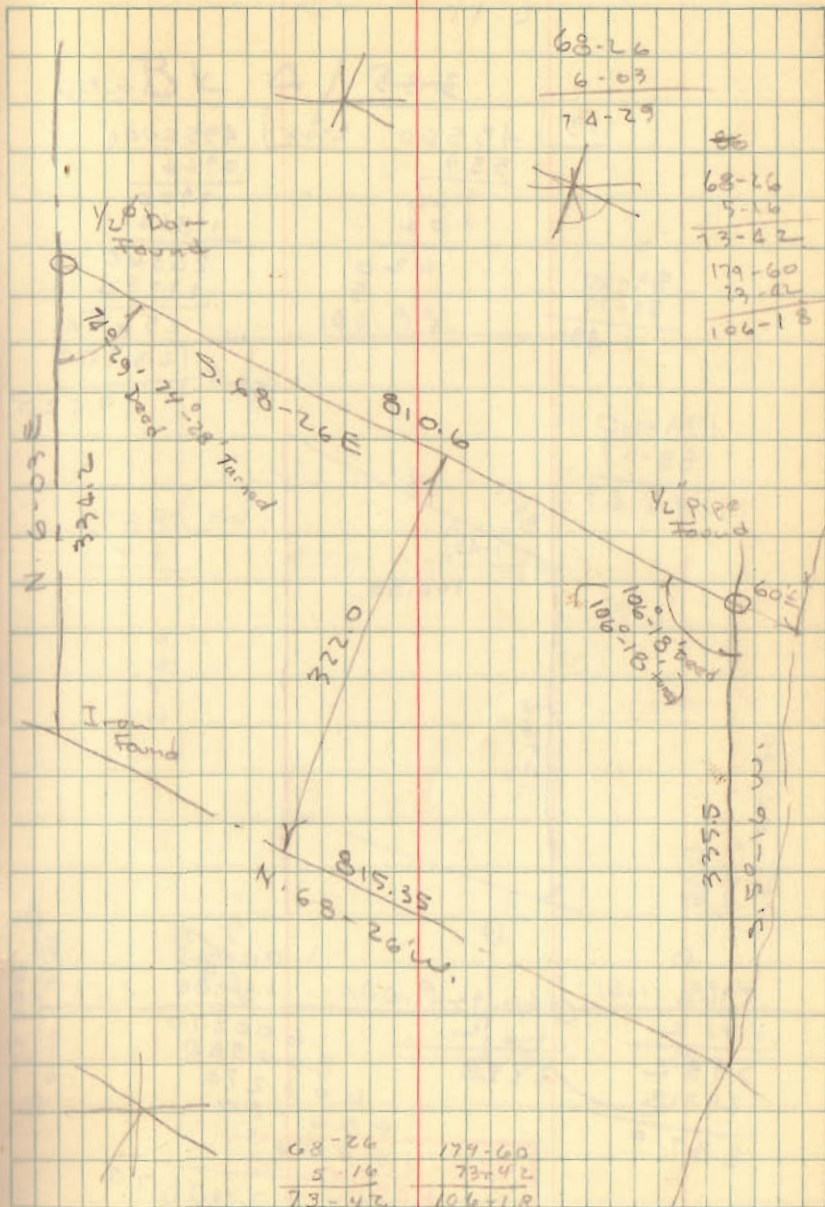 68-26
6-03
74-29
68-26
5-16
73-42
179-60
73-42
106-18
1/2"ϕ
Found
74°-29' Deed
74°-28' Turned
S. 68-26 E
810.6
N 6-03 E
334.2
1/2" Pipe
Found
60'±
106°-18' Deed
(106°-18' Turned)
322.0
Iron
Found
335.5
S. 5°-16 W.
815.35
N. 68-26' W.
68-26
5-16
73-42
179-60
73-42
106-18